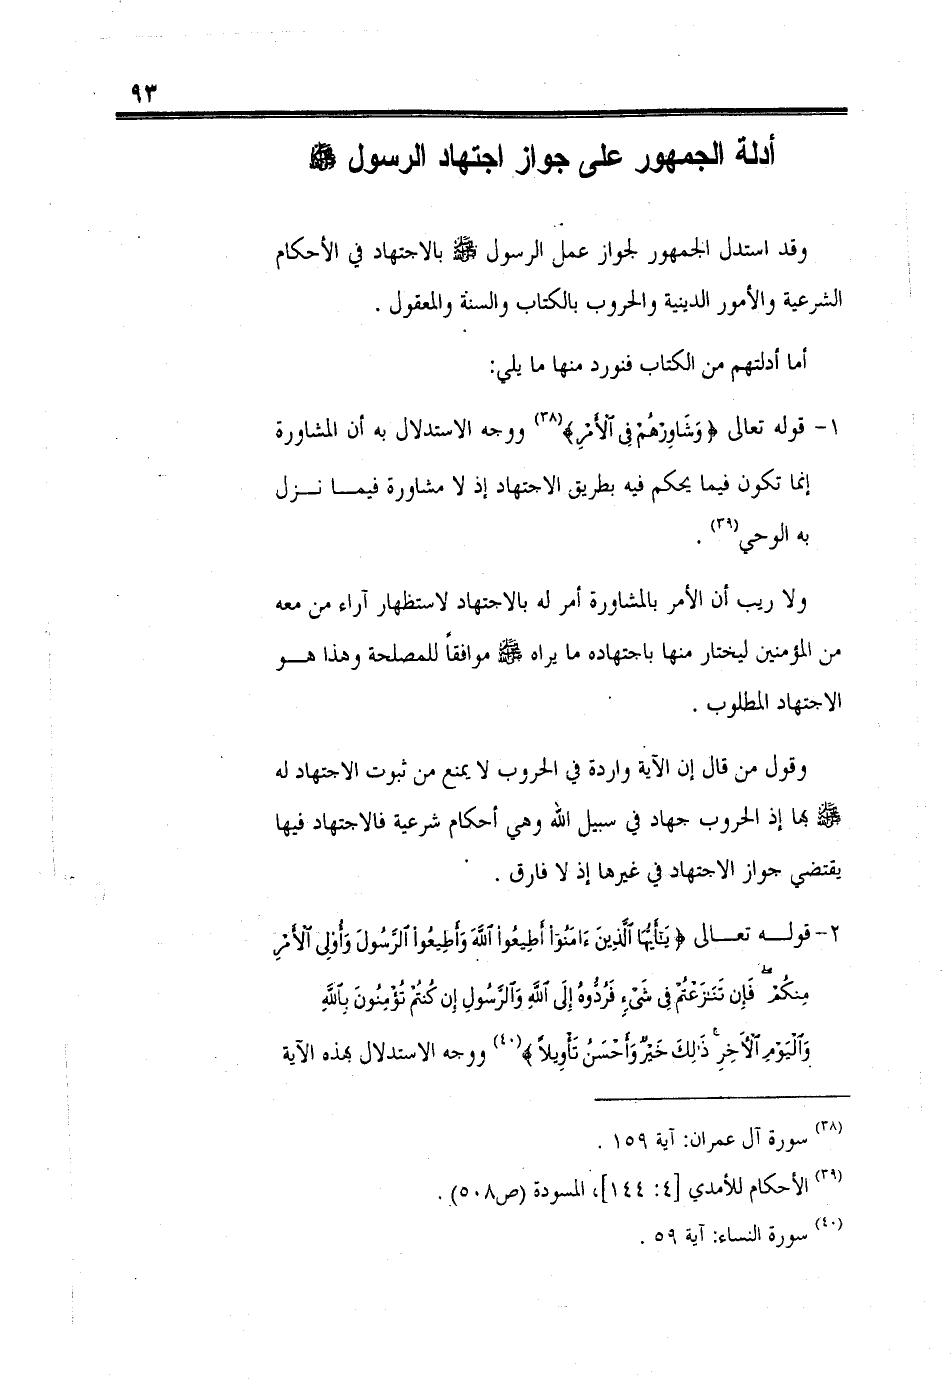 ٩٣
أدلة الجمهور على جواز اجتهاد الرسول ﷺ
وقد استدل الجمهور لجواز عمل الرسول ﷺ بالاجتهاد في الأحكام
الشرعية والأمور الدينية والحروب بالكتاب والسنة والمعقول .
أما أدلتهم من الكتاب فنورد منها ما يلي:
١- قوله تعالى ﴿ وَشَاوِرْهُمْ فِى ٱلْأَمْرِ﴾(٣٨) ووجه الاستدلال به أن المشاورة
إنما تكون فيما يحكم فيه بطريق الاجتهاد إذ لا مشاورة فيمـا نـزل
به الوحي(٣٩) .
ولا ريب أن الأمر بالمشاورة أمر له بالاجتهاد لاستظهار آراء من معه
من المؤمنين ليختار منها باجتهاده ما يراه ﷺ موافقاً للمصلحة وهذا هـو
الاجتهاد المطلوب .
وقول من قال إن الآية واردة في الحروب لا يمنع من ثبوت الاجتهاد له
ﷺ بها إذ الحروب جهاد في سبيل الله وهي أحكام شرعية فالاجتهاد فيها
يقتضي جواز الاجتهاد في غيرها إذ لا فارق .
٢- قولـه تعـالى ﴿ يَـٰٓأَيُّهَا ٱلَّذِينَ ءَامَنُوٓا۟ أَطِيعُوا۟ ٱللَّهَ وَأَطِيعُوا۟ ٱلرَّسُولَ وَأُو۟لِى ٱلْأَمْرِ
مِنكُمْ ۖ فَإِن تَنَـٰزَعْتُمْ فِى شَىْءٍ فَرُدُّوهُ إِلَى ٱللَّهِ وَٱلرَّسُولِ إِن كُنتُمْ تُؤْمِنُونَ بِٱللَّهِ
وَٱلْيَوْمِ ٱلْـَٔاخِرِ ۚ ذَٰلِكَ خَيْرٌ وَأَحْسَنُ تَأْوِيلاً ﴾(٤٠) ووجه الاستدلال بهذه الآية
(٣٨) سورة آل عمران: آية ١٥٩ .
(٣٩) الأحكام للأمدي [٤: ١٤٤]، المسودة (ص٥٠٨) .
(٤٠) سورة النساء: آية ٥٩ .